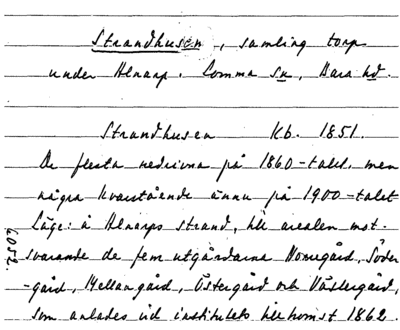 Strandhusen, samling torp
under Alnarp. Lomma sn, Bara hd.
Strandhusen Kb. 1851.
De flesta nedrivna på 1860-talet, men
några kvarstående ännu på 1900-talet
Läge: å Alnarps strand, till arealen mot-
svarande de fem utgårdarna Norregård, Söder-
-gård, Mellangård, Östergård och Västergård,
som anlades vid institutets tillkomst 1862.
6052.